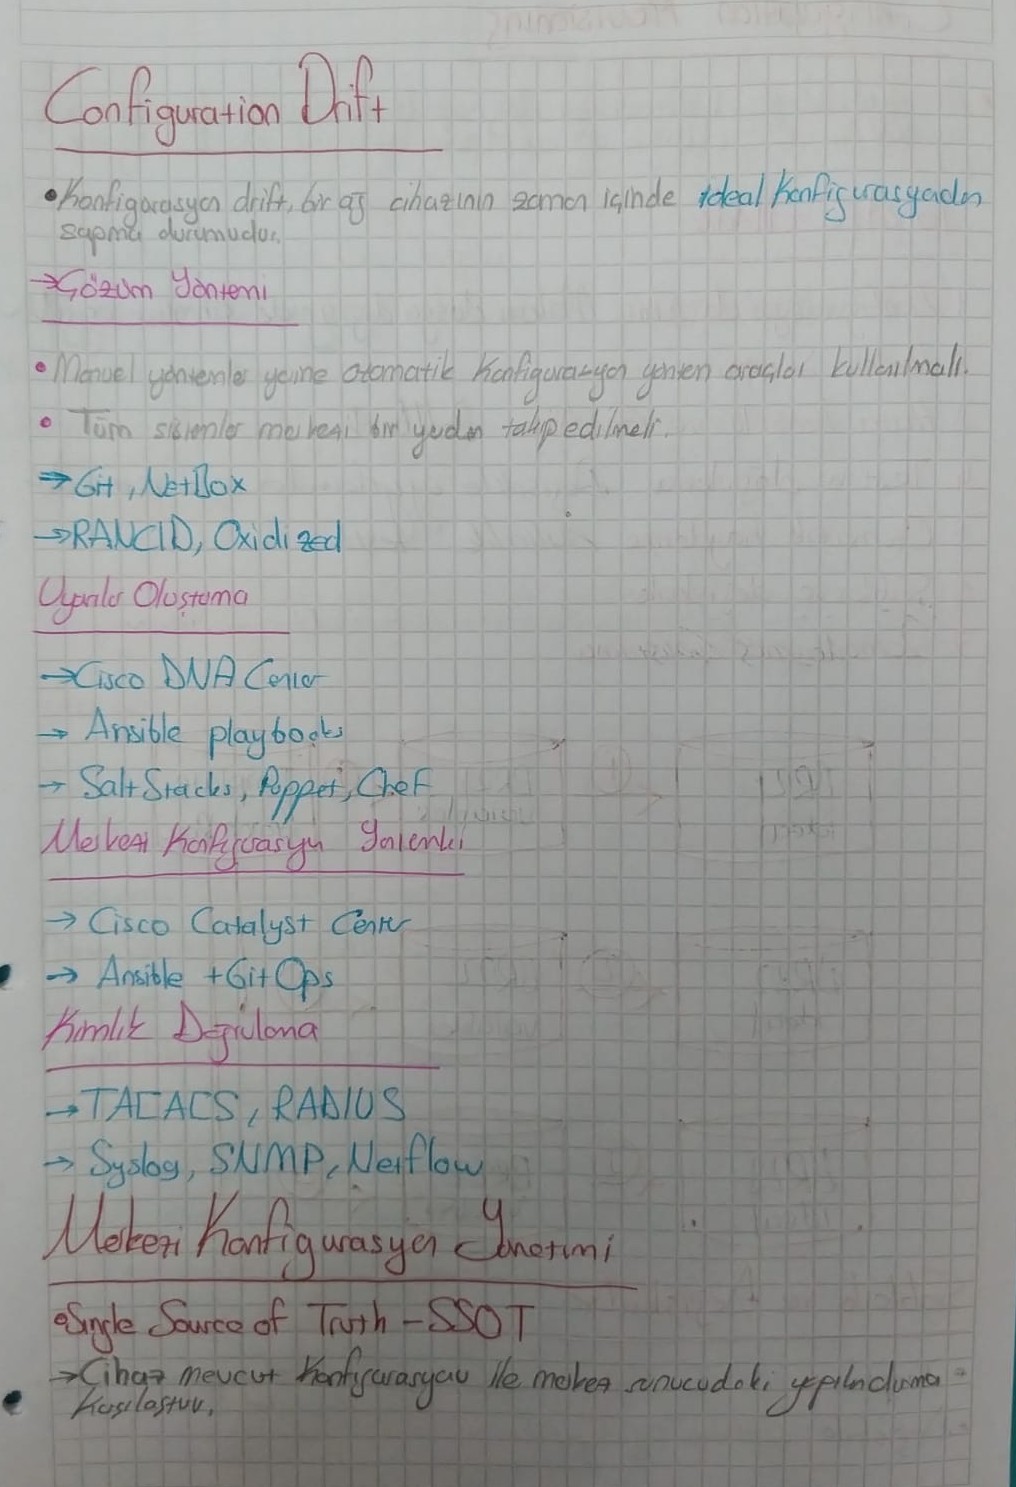 Configuration Drift
• Konfigurasyon drift, bir ağ cihazının zaman içinde ideal konfigurasyodan
sapma durumudur.
→ Çözüm Yöntemi
• Manuel yöntemler yerine otomatik konfigurasyon yöneten araçlar kullanılmalı.
• Tüm sistemler merkezi bir yerden takip edilmeli.
→ Git, NetBox
→ RANCID, Oxidized
Uyarılar Oluşturma
→ Cisco DNA Center
→ Ansible playbooks
→ SaltStacks, Puppet, Chef
Merkezi Konfigurasyon Yöntemleri
→ Cisco Catalyst Center
→ Ansible + GitOps
Kimlik Doğrulama
→ TACACS, RADIUS
→ Syslog, SNMP, Netflow
Merkezi Konfigurasyon Yönetimi
• Single Source of Truth - SSOT
→ Cihaz mevcut konfigurasyonu ile merkez sunucudaki yapılandırma
karşılaştırır.